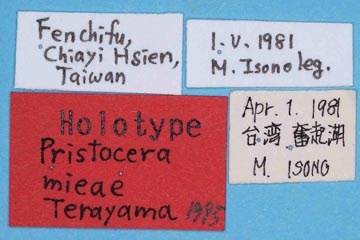 Fenchifu,
Chiayi Hsien,
Taiwan
1.V.1981
M. Isono leg.
Holotype
Pristocera
mieae
Terayama 1995
Apr. 1. 1981
台湾 奮起湖
M. ISONO